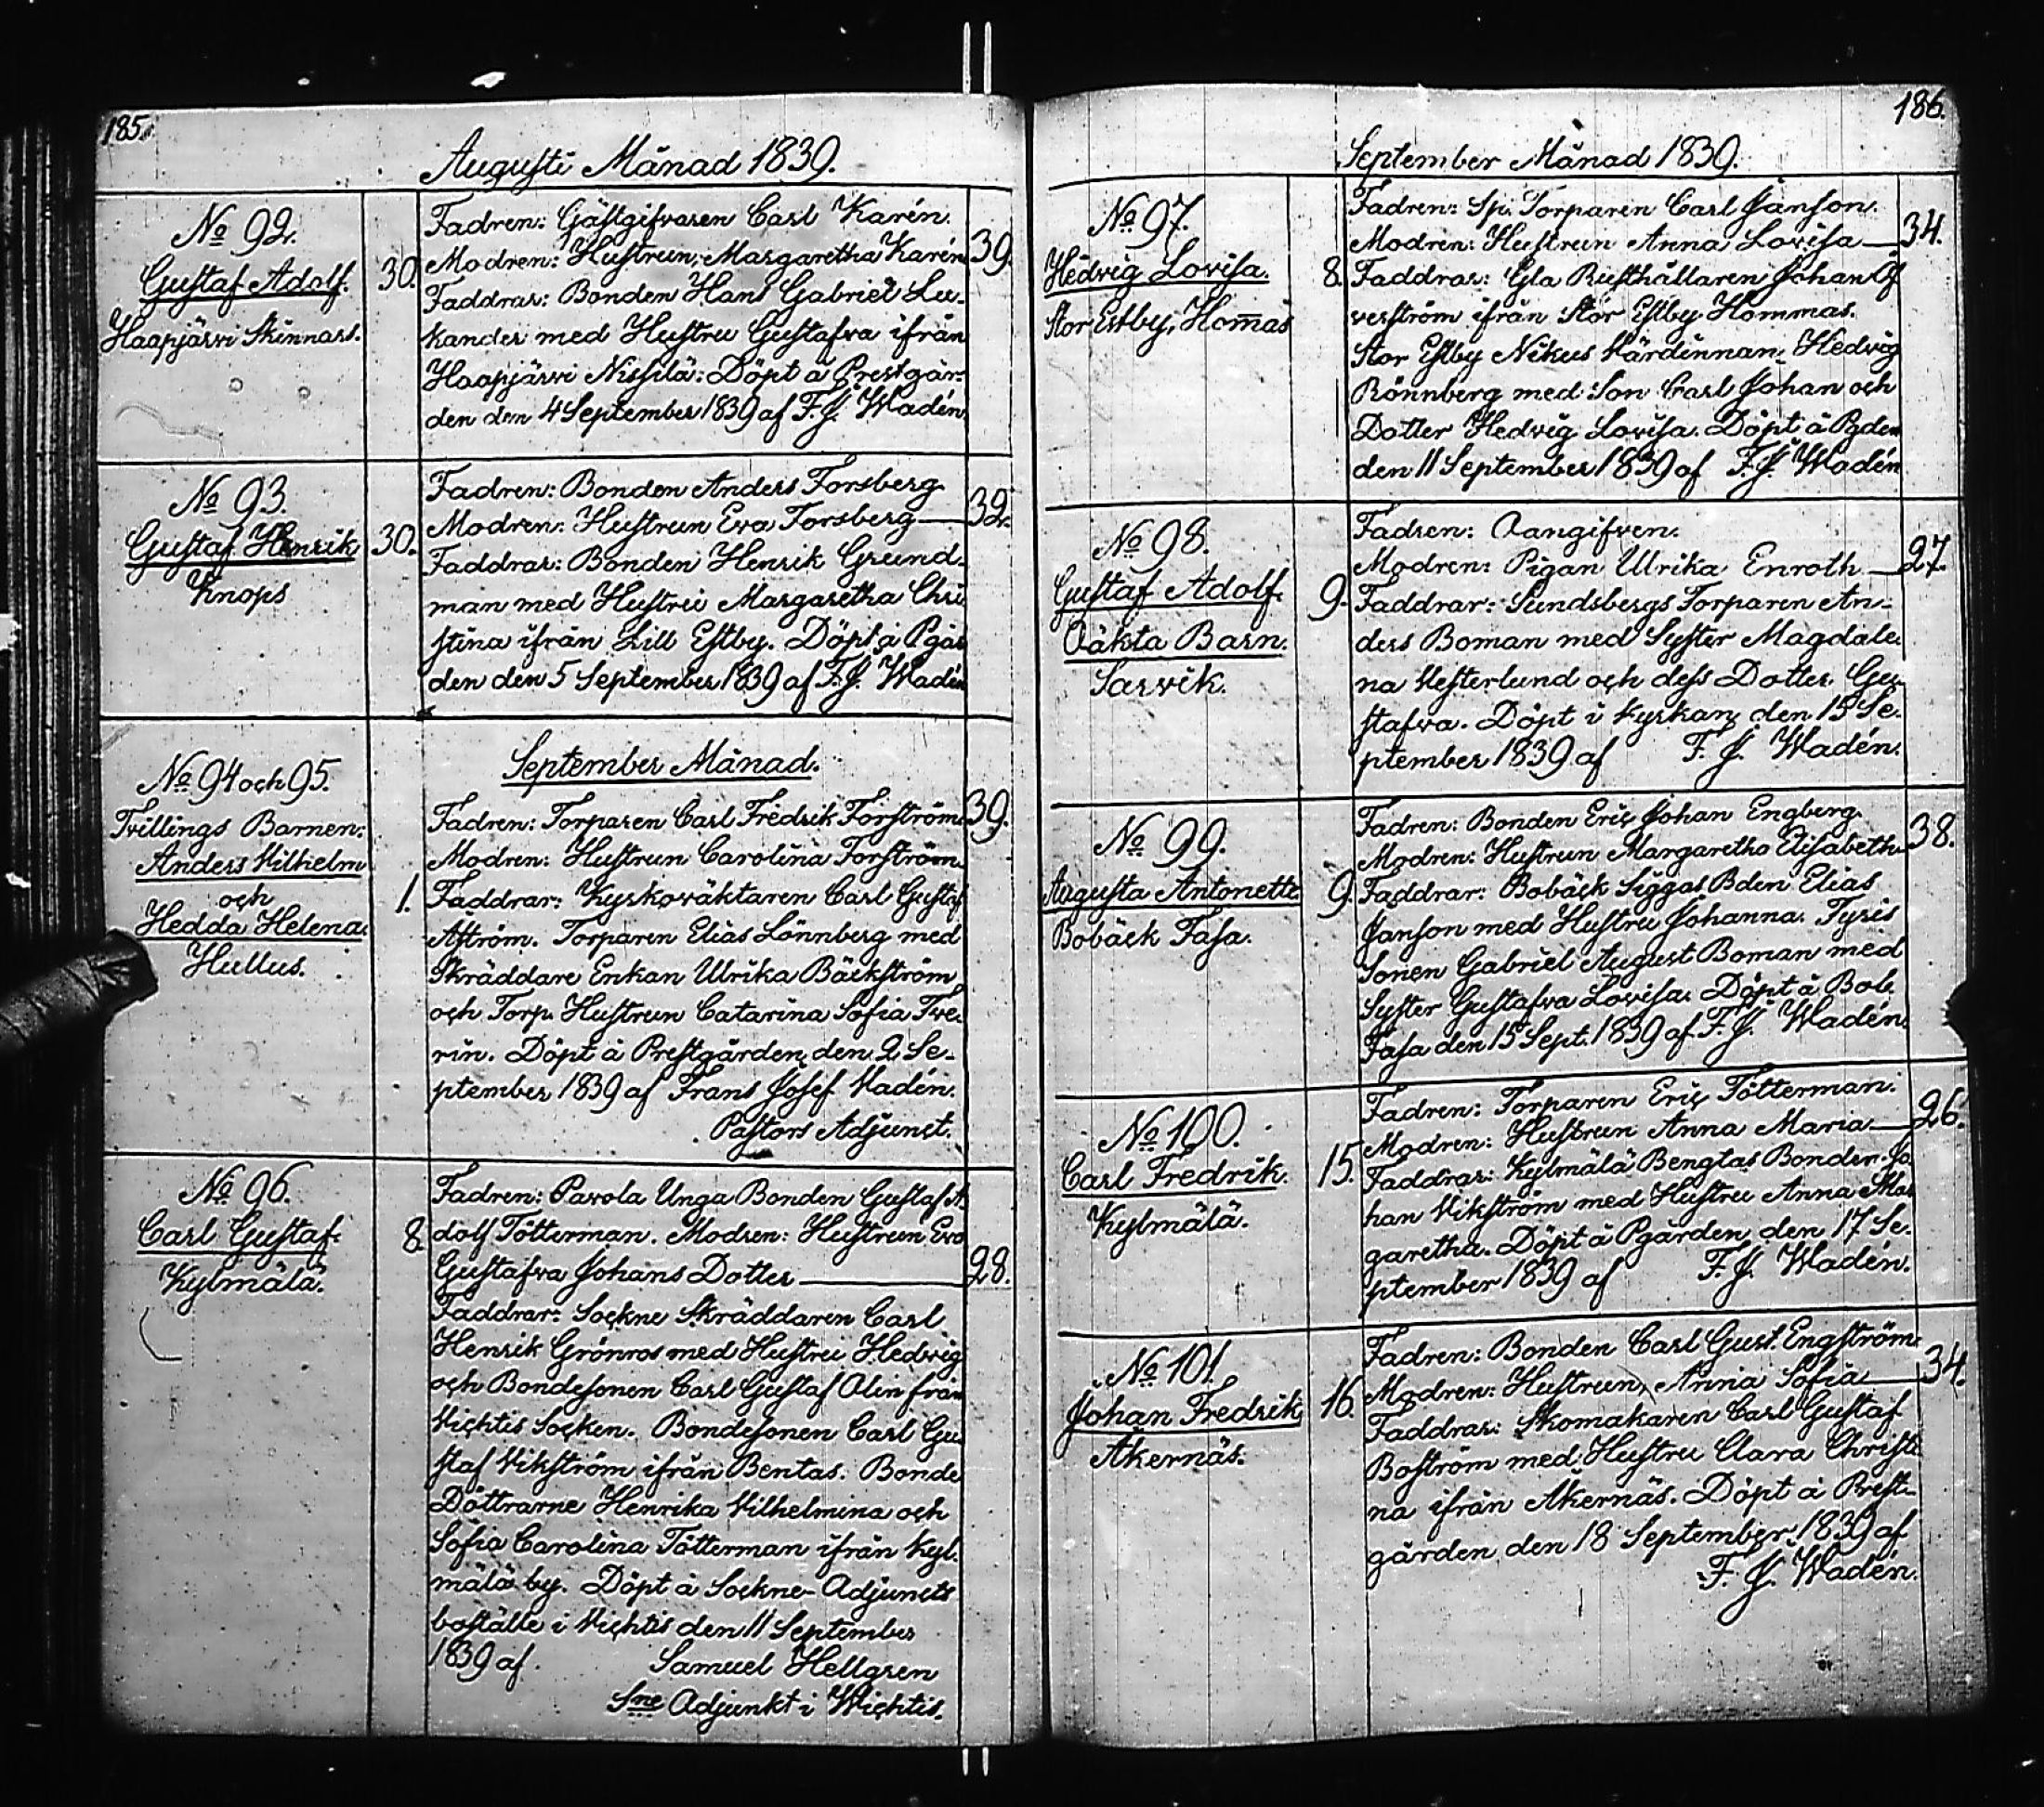 185.
Augusti Månad 1839.
No 92.
Gustaf Adolf.
Haapjärvi Skinnars.
30.
Fadren: Gästgifvaren Carl Karén.
Modren: Hustrun, Margaretha Karén
39.
Faddrar: Bonden Hans Gabriel Lu-
kander med Hustru Gustafva ifrån
Haapjärvi Nissilä: Döpt å Prestgår-
den den 4 September 1839 af F. J. Wadén.
No 93.
Gustaf Henrik
Knops
30.
Fadren: Bonden Anders Forsberg
Modren: Hustrun Eva Forsberg
32.
Faddrar: Bonden Henrik Grund-
man med Hustru Margaretha Chri
stina ifrån Lill Estby. Döpt å Pgår
den den 5 September 1839 af F. J. Wadén
September Månad.
No 94 och 95.
Tvillings Barnen:
Anders Vilhelm
och
Hedda Helena.
Hullus.
1.
Fadren: Torparen Carl Fredrik Forström
39.
Modren: Hustrun Carolina Forström
Faddrar: Kyrkoväktaren Carl Gustaf
Åström. Torparen Elias Lönnberg med
Skräddare Enkan Ulrika Bäckström
och Torp. Hustrun Catarina Sofia Tve-
rin. Döpt å Prestgården, den 2 Se-
ptember 1839 af Frans Josef Wadén.
Pastors Adjunct.
No 96.
Carl Gustaf.
Kylmälä.
8.
Fadren: Pavola Unga Bonden Gustaf A
dolf Tötterman. Modren: Hustrun Eva
Gustafva Johans Dotter
28.
Faddrar: Sockne Skräddaren Carl
Henrik Grönros med Hustru Hedvig
och Bondesonen Carl Gustaf Alin från
Vichtis Socken. Bondesonen Carl Gu
staf Vikström ifrån Bentas. Bonde
Döttrarne Henrika Vilhelmina och
Sofia Carolina Tötterman ifrån Kyl
mälä by. Döpt å Sockne-Adjuncts
boställe i Vichtis den 11 September
1839 af. Samuel Hellgren
Sne Adjunkt i Wichtis.
186.
September Månad 1839.
No 97.
Hedvig Lovisa.
Stor Estby, Hom̅as
8.
Fadren: Sp. Torparen Carl Janson.
Modren: Hustrun Anna Lovisa
34.
Faddrar: Gla Rusthållaren Johan Öf
verström ifrån Stor Estby Hommas.
Stor Estby Nikus Värdinnan, Hedvig
Rönnberg med Son Carl Johan och
Dotter Hedvig Lovisa. Döpt å Pgden
den 11 September 1839 af F. J. Wadén
No 98.
Gustaf Adolf.
Oäkta Barn.
Sarvik.
9.
Fadren: Oangifven.
Modren: Pigan Ulrika Enroth
27.
Faddrar: Sundsbergs Torparen An-
ders Boman med Syster Magdale-
na Vesterlund och dess Dotter Gu-
stafva. Döpt i Kyrkan, den 15 Se-
ptember 1839 af F. J. Wadén.
No 99.
Augusta Antonette
Bobäck Fasa.
9.
Fadren: Bonden Eric Johan Engberg.
Modren: Hustrun Margaretha Elisabeth
38.
Faddrar: Bobäck Siggas Bden Elias
Janson med Hustru Johanna. Tyris
Sonen Gabriel August Boman med
Syster Gustafva Lovisa. Döpt å Bob.
Fasa den 15 Sept. 1839 af F. J. Wadén.
No 100.
Carl Fredrik.
Kylmälä.
15.
Fadren: Torparen Eric Tötterman.
Modren: Hustrun Anna Maria
26.
Faddrar: Kylmälä Bengtas Bonden Jo
han Vikström med Hustru Anna Mar
garetha. Döpt å Pgården, den 17 Se-
ptember 1839 af F. J. Wadén.
No 101.
Johan Fredrik
Åkernäs.
16.
Fadren: Bonden Carl Gust. Engström
Modren: Hustrun, Anna Sofia
34.
Faddrar: Skomakaren Carl Gustaf
Boström med Hustru Clara Christi
na ifrån Åkernäs. Döpt å Prest-
gården den 18 September 1839 af
F. J. Wadén.